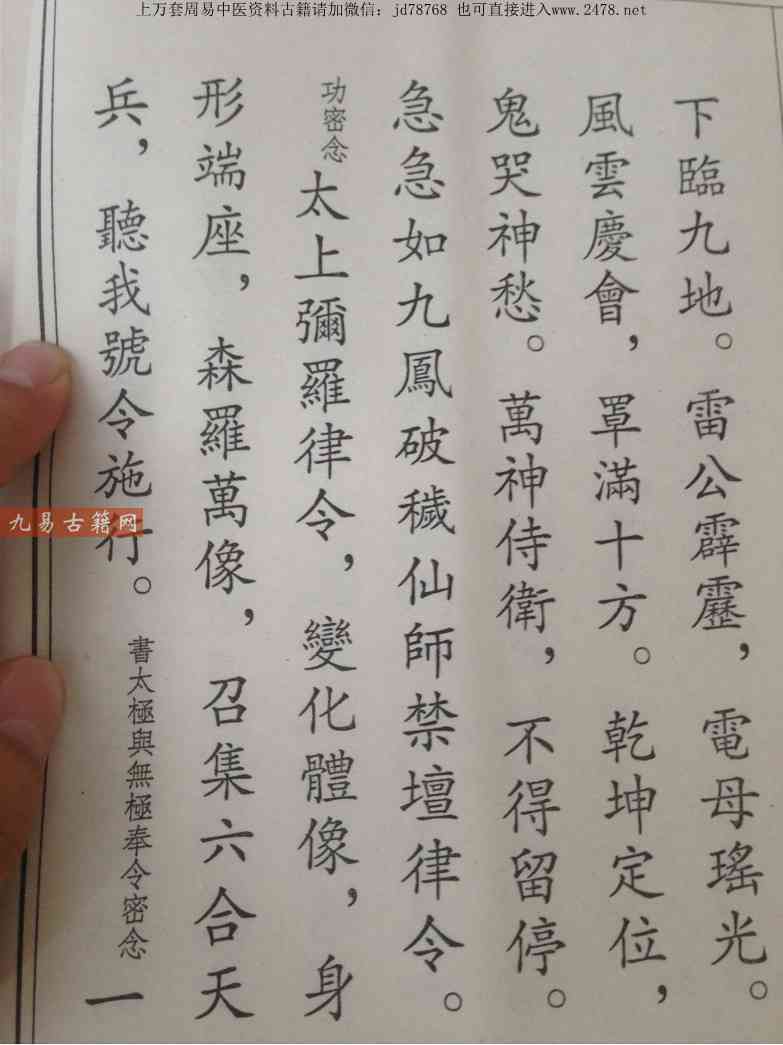 上万套周易中医资料古籍请加微信：jd78768 也可直接进入www.2478.net
下臨九地。雷公霹靂，電母瑤光。
風雲慶會，罩滿十方。乾坤定位，
鬼哭神愁。萬神侍衛，不得留停。
急急如九鳳破穢仙師禁壇律令。
功密念太上彌羅律令，變化體像，身
形端座，森羅萬像，召集六合天
兵，聽我號令施行。書太極與無極奉令密念一
九易古籍网